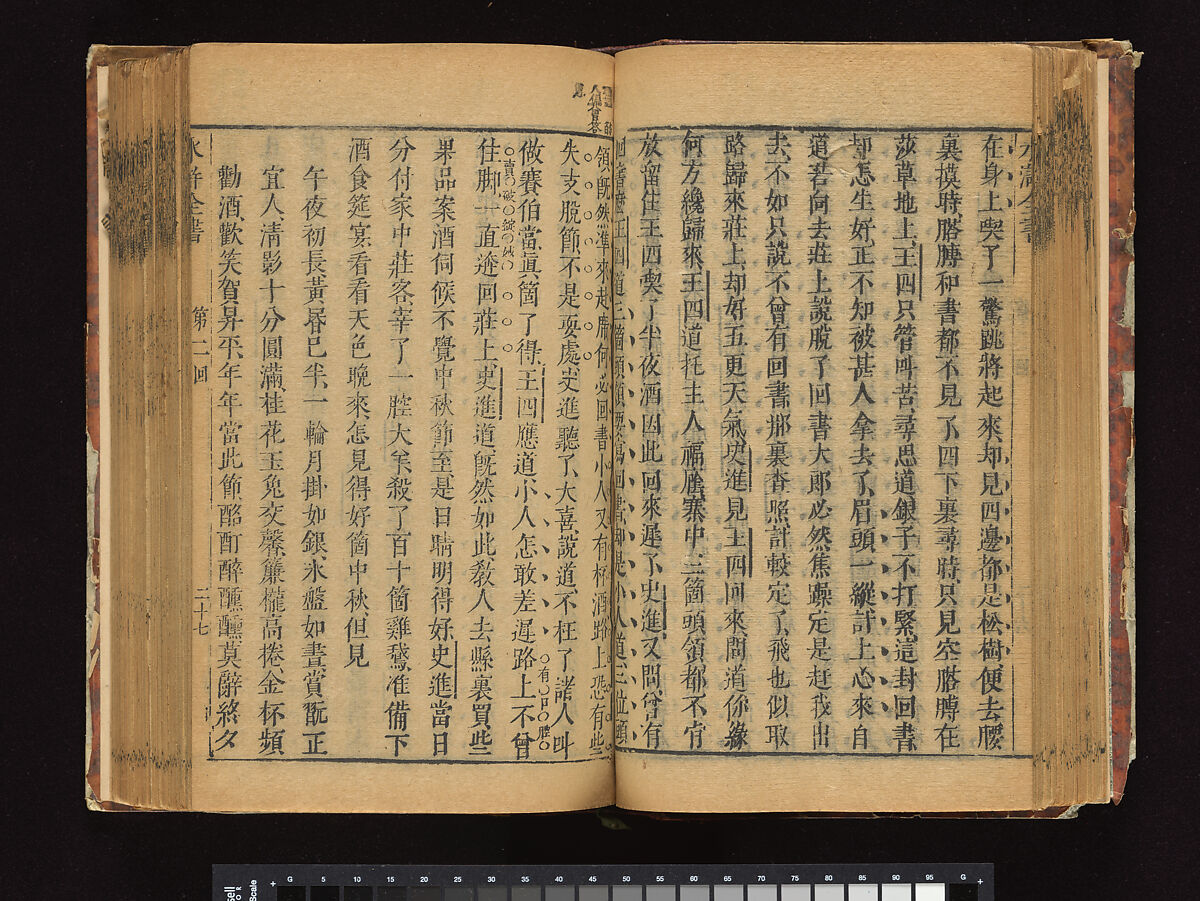 在身上喫了一驚跳將起來却見四邊都是松樹便去腰
裏摸時胳膊和書都不見了四下裏尋時只見空胳膊在
莎草地上王四只管叫苦尋思道銀子不打緊這封回書
却怎生好正不知被甚人拿去了眉頭一縱計上心來自
道若回去莊上說脫了回書大郎必然焦躁定是赶我出
去不如只說不曾有回書那裏查照計較定了飛也似取
路歸來莊上却好五更天氣史進見王四回來問道你緣
何方纔歸來王四道托主人福廕寨中三箇頭領都不肯
放留住王四喫了半夜酒因此回來遲了史進又問曾有
回書麽王四道三箇頭領要寫回書却是小人道三位頭
領既然準來赴席何必回書小人又有杯酒路上恐有些
失支脫節不是耍處史進聽了大喜說道不枉了諸人叫
做賽伯當眞箇了得王四應道小人怎敢差遲路上不曾
住脚一直逩回莊上史進道既然如此敎人去縣裏買些
果品案酒伺候不覺中秋節至是日晴明得好史進當日
分付家中莊客宰了一腔大羊殺了百十箇雞鵝准備下
酒食筵宴看看天色晚來怎見得好箇中秋但見
午夜初長黃昏已半一輪月掛如銀氷盤如晝賞翫正
宜人清影十分圓滿桂花玉兔交馨簾櫳高捲金杯頻
勸酒歡笑賀昇平年年當此節酩酊醉醺醺莫辭終夕
水滸全書
第二回
二十七
賣破綻
G 5 10 15 20 25 30 35 40 45 50 55 60 65 70 75 80 85 90 95 G
Scale